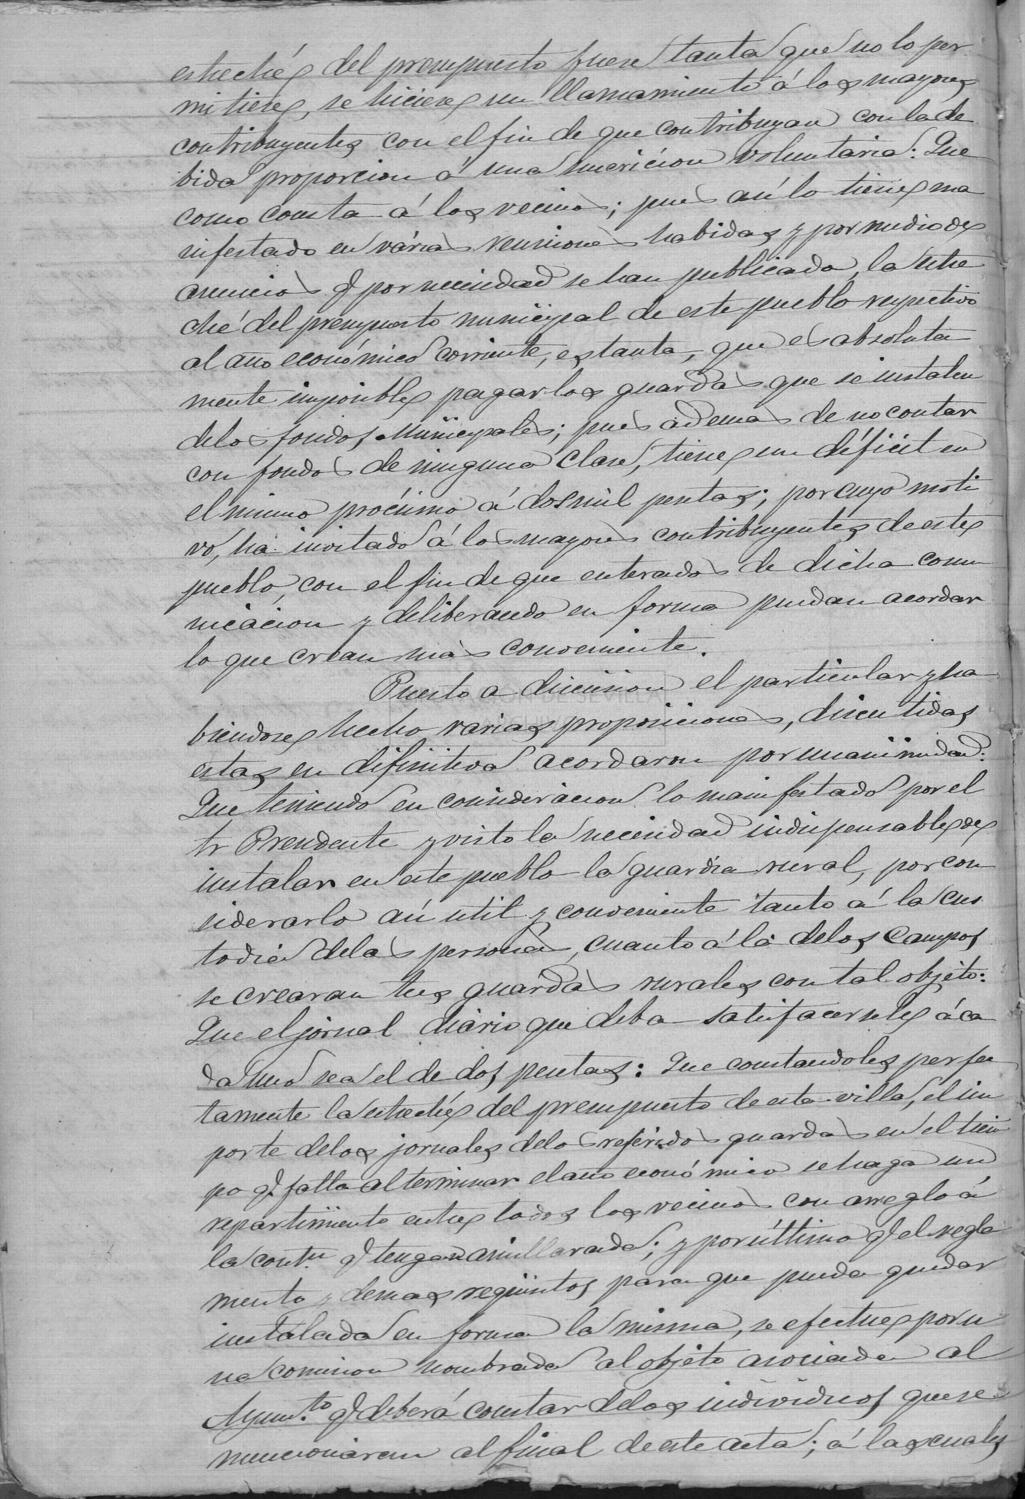 estrechéz del presupuesto fuese tanta que no lo per
mitiese, se hiciese un llamamiento á los mayores
contribuyentes con el fin de que contribuyan con la de
bida proporcion á una suscricion voluntaria: Que
como consta á los vecinos; pues así lo tiene ma
nifestado en várias reuniones habidas y por medio de
anuncios q.e por necesidad se han publicado, la estre
ché del presupuesto municipal de este pueblo respectivo
al año económico corriente, es tanta, que es absoluta
mente imposible pagar los guardas que se instalen
de los fondos Municipales; pues ademas de no contar
con fondos de ninguna clase, tiene un déficit en
el mismo procsimo á dos mil pesetas; por cuyo moti
vo, ha invitado á los mayores contribuyentes de este
pueblo, con el fin de que enterados de dicha comu
nicacion y deliberando en forma puedan acordar
lo que crean más conveniente.
Puesto a discusion el particular y ha
biendose hecho varias proposiciones, discutidas
estas en difinitiva acordaron por unanimidad:
Que teniendo en consideracion lo manifestado por el
Sr Presidente y visto la necesidad indispensable de
instalar en este pueblo la guardia rural, por con
siderarlo así util y conveniente tanto á la cus
todia de las personas, cuanto á la de los Campos
se crearan tres guardas rurales con tal objeto:
Que el jornal diário que deba satisfacerseles á ca
da uno sea el de dos pesetas: Que constandoles perfec
tamente la estrechéz del presupuesto de esta villa, el im
porte de los jornales de los referidos guardas en el tiem
po q.e falta al terminar el año económico se haga un
repartimiento entre todos los vecinos con arreglo á
la cont.n q.e tengan amillarada; y por último q.e el regla
mento y demas requisitos para que pueda quedar
instalada en forma la misma, se efectue por u
na comision nombrada al objeto asociada al
Ayun.to q.e deberá constar de los individuos que se
mencionaran al final de este acta; á las cuales